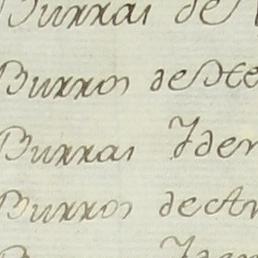 Burras de
Burros de
Burras Iden
Burros de An
Iden